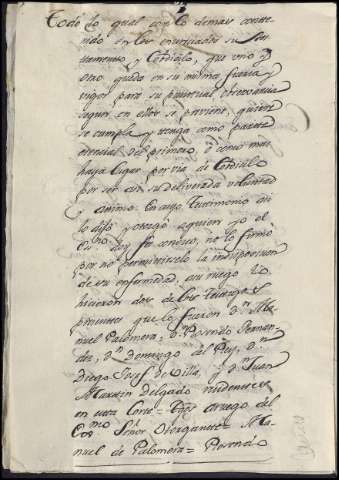 Todo lo qual con lo demas conte
nido en los enunciados su Tes
tamento y Cobdicilo, que uno y
otro queda en su misma fuerza y
vigor para su puntual observancia
segun en ellos se previene, quiere
se cumpla y tenga como parte
esencial del primero ò como mas
haya lugar por via de Cobdicilo
por ser asi su deliverada voluntad
y animo. En cuyo testimonio asi
lo dijo y otorgó aquien yo el
Esno doy fe conozco, no lo firmò
por no permitirselo la indisposicion
de su enfermedad, asu ruego lo
hicieron dos de los testigos
presentes que lo fueron Dn. Ma
nuel Palomera, Dn. Rosendo Fernan
dez, Dn. Domingo del Rey, Dn.
Diego Josef de Villa, y Dn. Juan
Martin Delgado residentes
en esta Corte = Tgo. aruego del
Señor Otorgante = Ma
nuel de Palomera = Rosendo